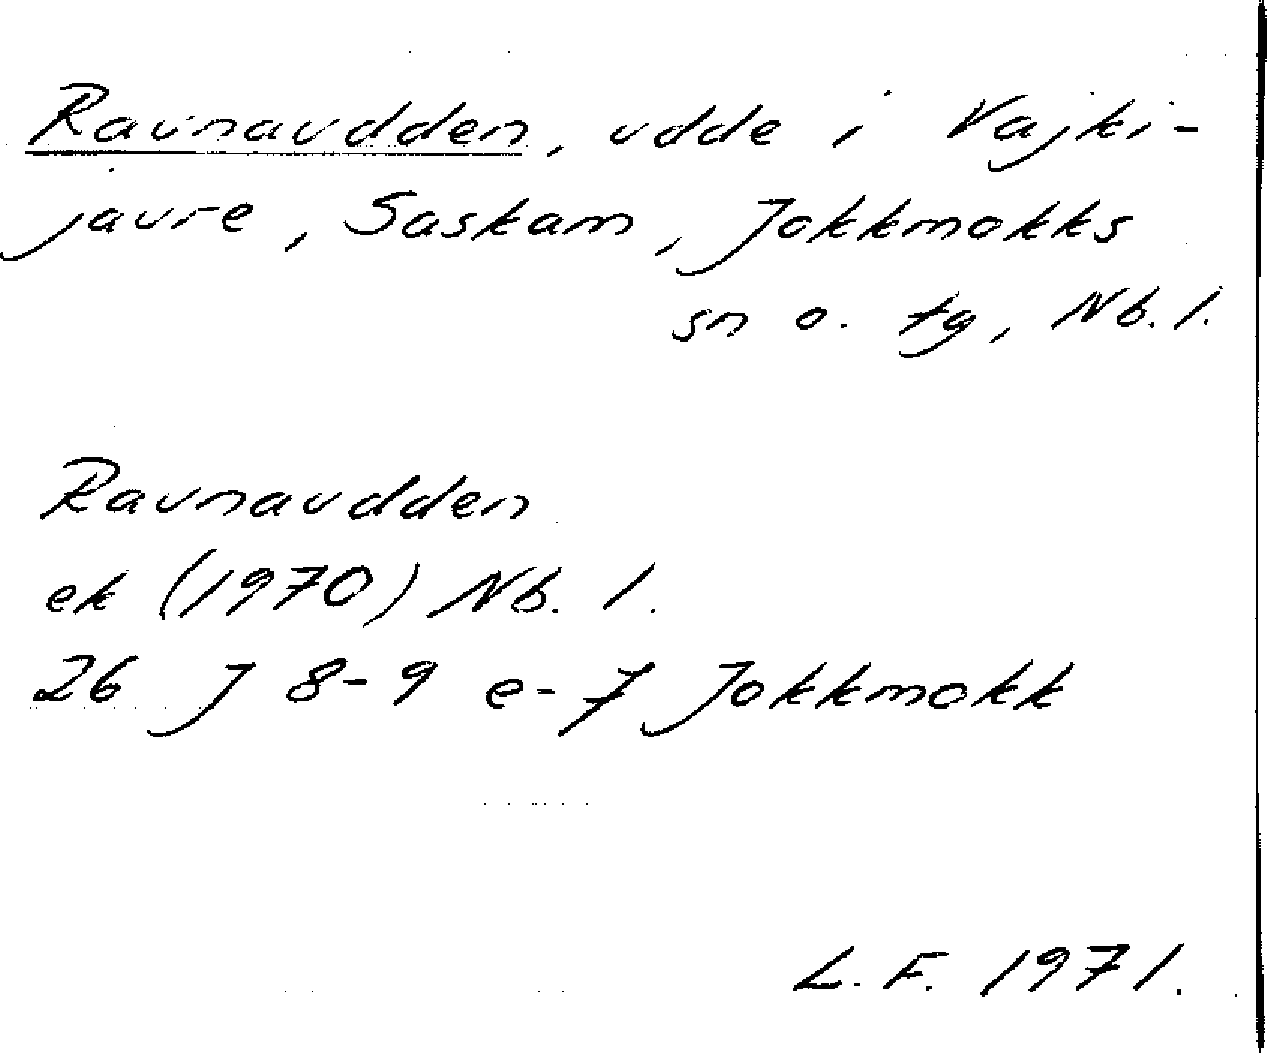 Raunaudden, udde i Vajki-
jaure, Saskam, Jokkmokks
sn o. tg, Nb. l.
Raunaudden
ek (1970) Nb. l.
26 J 8-9 e-f Jokkmokk
L. F. 1971.